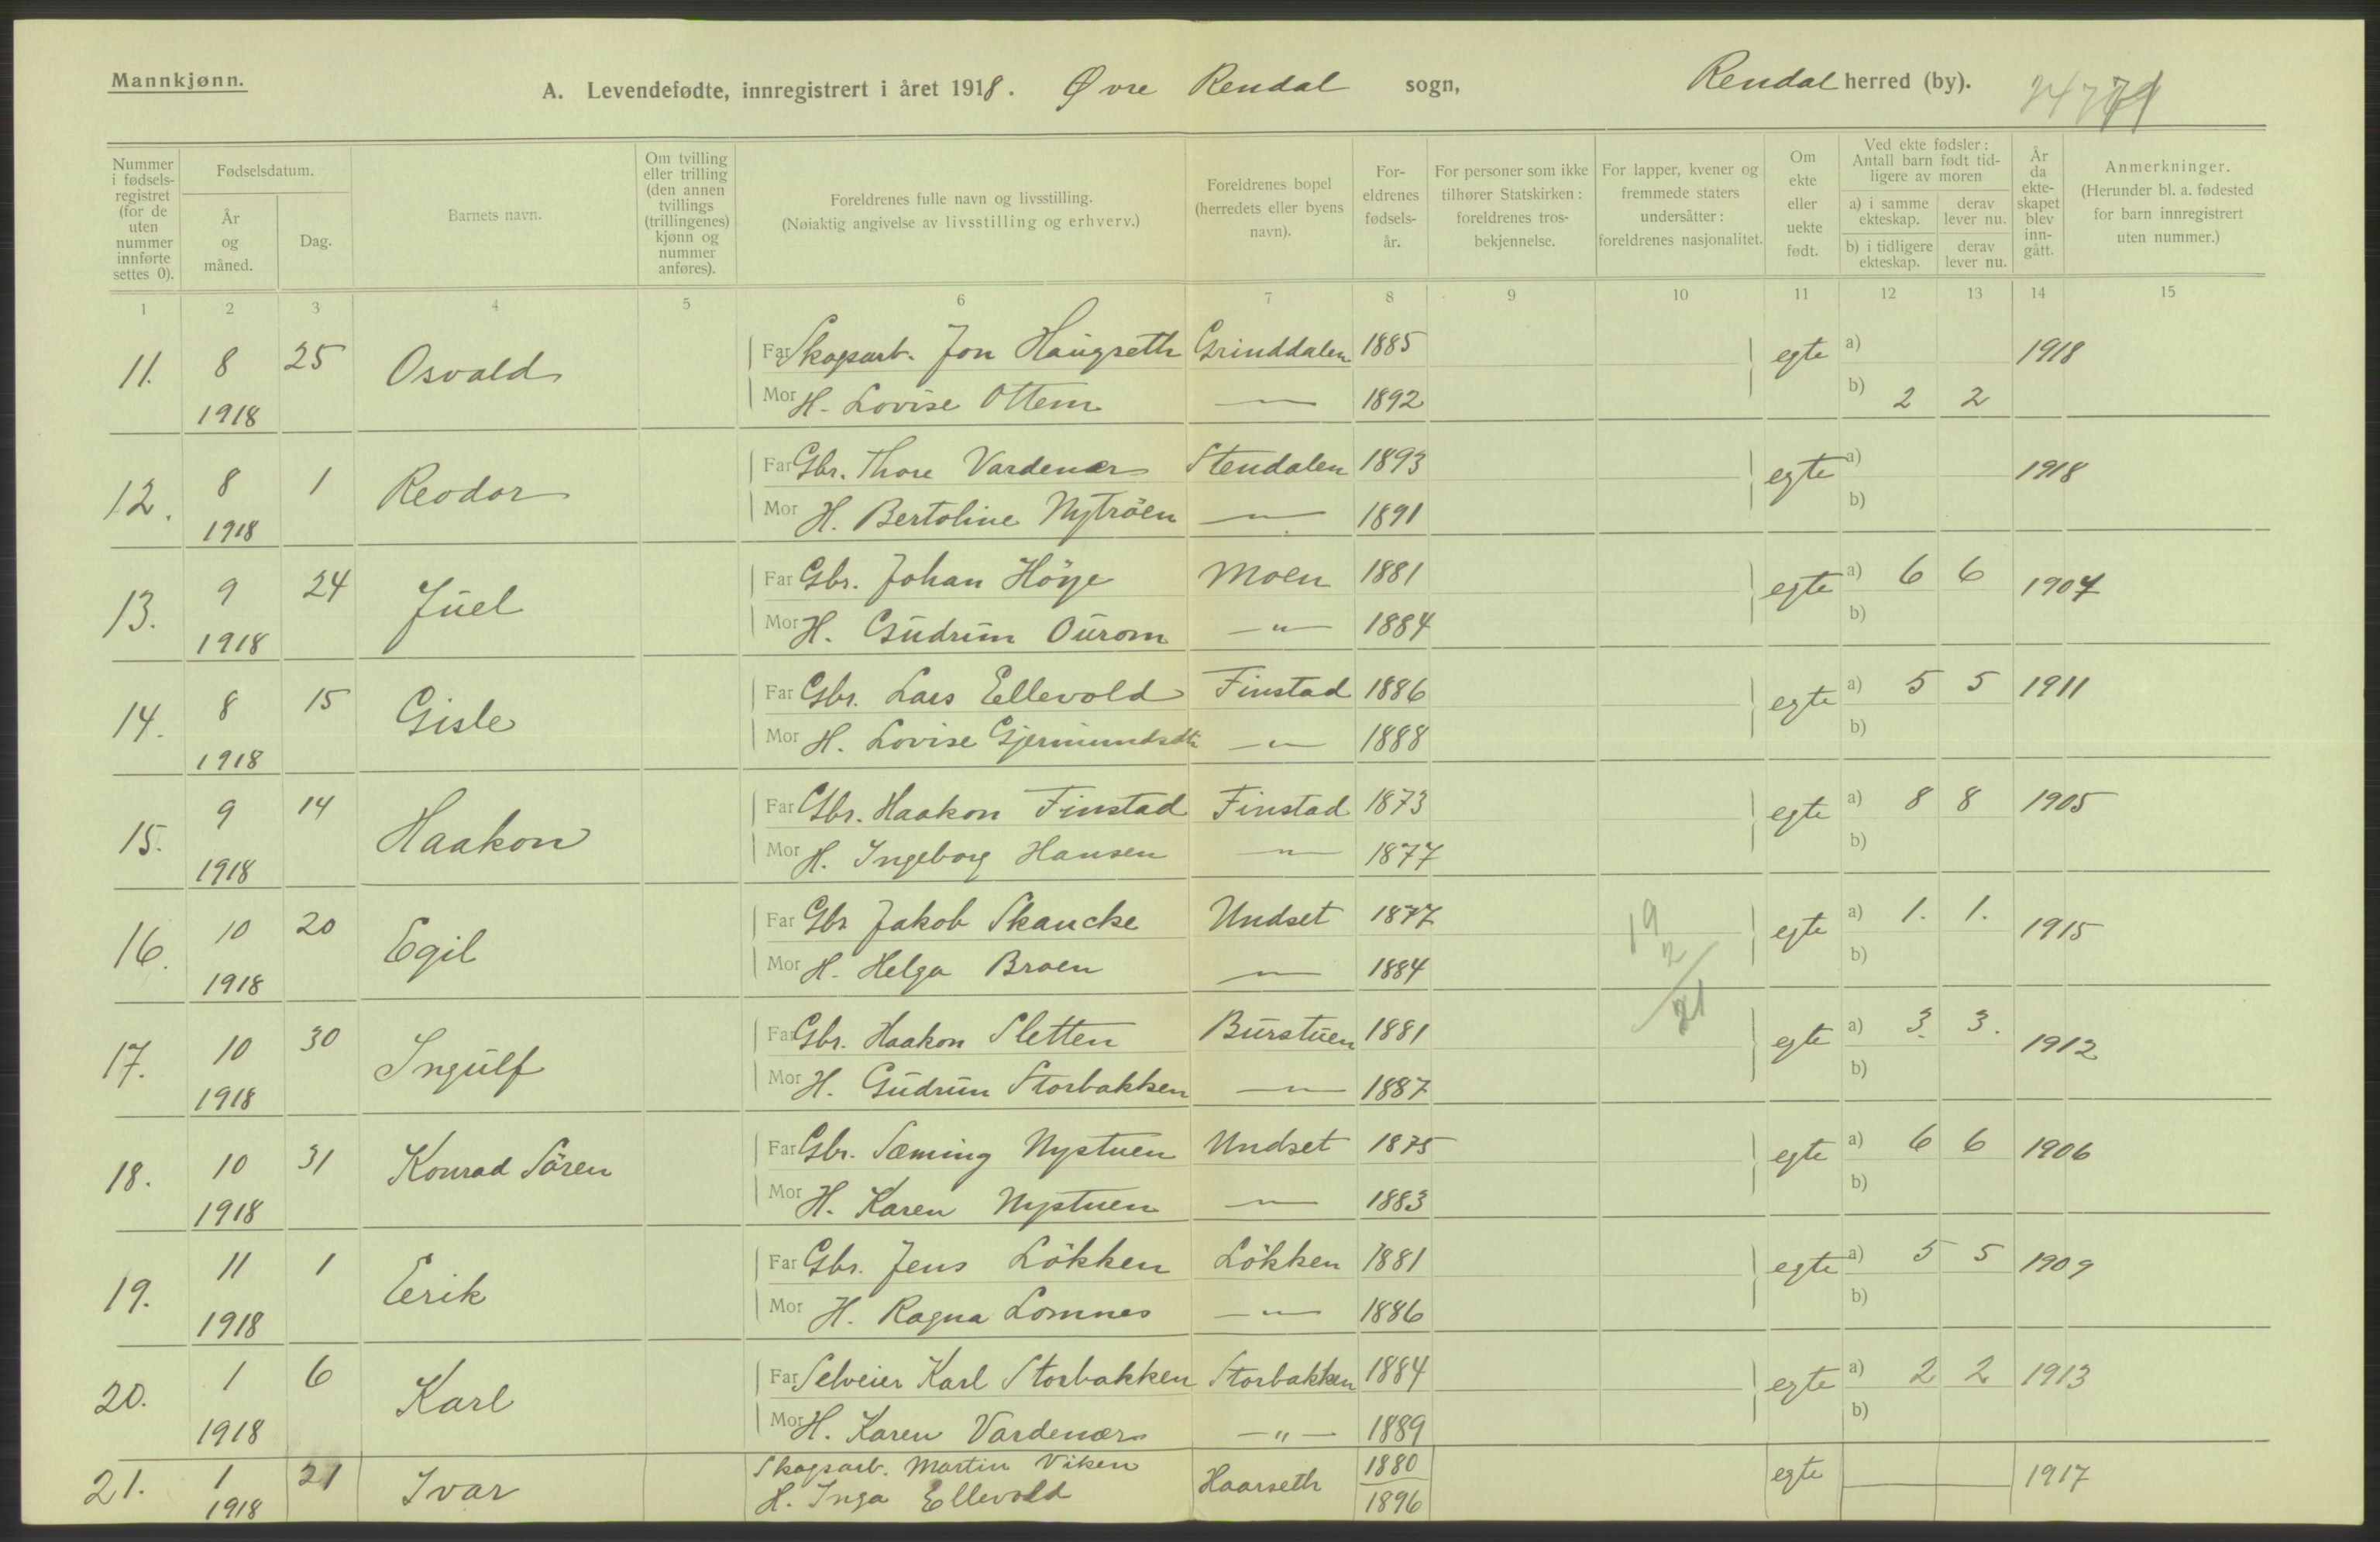 Mannkjønn.
A. Levendefødte, innregistrert i året 1918. Øvre Rendal sogn, Rendal herred (by).
Nummer i fødsels-registret (for de uten nummer innførte settes 0).
Fødselsdatum.
År og måned.
Dag.
Barnets navn.
Om tvilling eller trilling (den annen tvillings (trillingenes) kjønn og nummer anføres).
Foreldrenes fulle navn og livsstilling.
(Nøiaktig angivelse av livsstilling og erhverv.)
Foreldrenes bopel (herredets eller byens navn).
For-eldrenes fødsels-år.
For personer som ikke tilhører Statskirken: foreldrenes tros-bekjennelse.
For lapper, kvener og fremmede staters undersåtter: foreldrenes nasjonalitet.
Om ekte eller uekte født.
Ved ekte fødsler: Antall barn født tid-ligere av moren
a) i samme ekteskap.
derav lever nu.
b) i tidligere ekteskap.
derav lever nu.
År da ekte-skapet blev inn-gått.
Anmerkninger.
(Herunder bl. a. fødested for barn innregistrert uten nummer.)
1 2 3 4 5 6 7 8 9 10 11 12 13 14 15
11. 8 25 Osvald Far Skogsarb. Jon Haugseth Grinddalen 1885 egte a) 1918
1918 Mor H. Lovise Ottem —"— 1892 b) 2 2
12. 8 1 Reodor Far Gbr. Thore Vardenær Stendalen 1893 egte a) 1918
1918 Mor H. Bertoline Nytröen —"— 1891 b)
13. 9 24 Juel Far Gbr. Johan Höye Moen 1881 egte a) 6 6 1904
1918 Mor H. Gudrun Ourom —"— 1884 b)
14. 8 15 Gisle Far Gbr. Lars Ellevold Finstad 1886 egte a) 5 5 1911
1918 Mor H. Lovise Gjermundsdtr —"— 1888 b)
15. 9 14 Haakon Far Gbr. Haakon Finstad Finstad 1873 egte a) 8 8 1905
1918 Mor H. Ingeborg Hansen —"— 1877 b)
16. 10 20 Egil Far Gbr Jakob Skancke Undset 1877 19 2/21 egte a) 1. 1. 1915
1918 Mor H. Helga Broen —"— 1884 b)
17. 10 30 Ingulf Far Gbr. Haakon Sletten Burstuen 1881 egte a) 3. 3. 1912
1918 Mor H. Gudrun Storbakken —"— 1887 b)
18. 10 31 Konrad Sören Far Gbr. Sæming Nystuen Undset 1875 egte a) 6 6 1906
1918 Mor H. Karen Nystuen —"— 1883 b)
19. 11 1 Eerik Far Gbr. Jens Lökken Lökken 1881 egte a) 5 5 1909
1918 Mor H. Ragna Lomnes —"— 1886 b)
20. 1 6 Karl Far Selveier Karl Storbakken Storbakken 1884 egte a) 2 2 1913
1918 Mor H. Karen Vardenær —"— 1889 b)
21. 1 21 Ivar Skogsarb. Martin Viken Haarseth 1880 egte 1917
1918 H. Inga Ellevold 1896